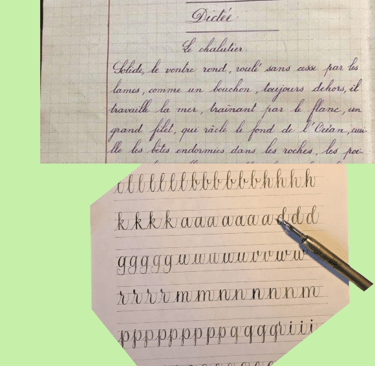 Dictée
Le chalutier
Solide, le ventre rond, roulé sans cesse par les
lames, comme un bouchon, toujours dehors, il
travaille la mer, traînant par le flanc, un
grand filet, qui râcle le fond de l'Océan, cuei-
lle les bêtes endormies dans les roches, les poi-
l l l l l l l b b b b b b b h h h h
k k k k a a a a a a a d d d
g g g g g u u u u u v v w w
r r r r m m n n n n n m
p p p p p p p p p q q q q i i i